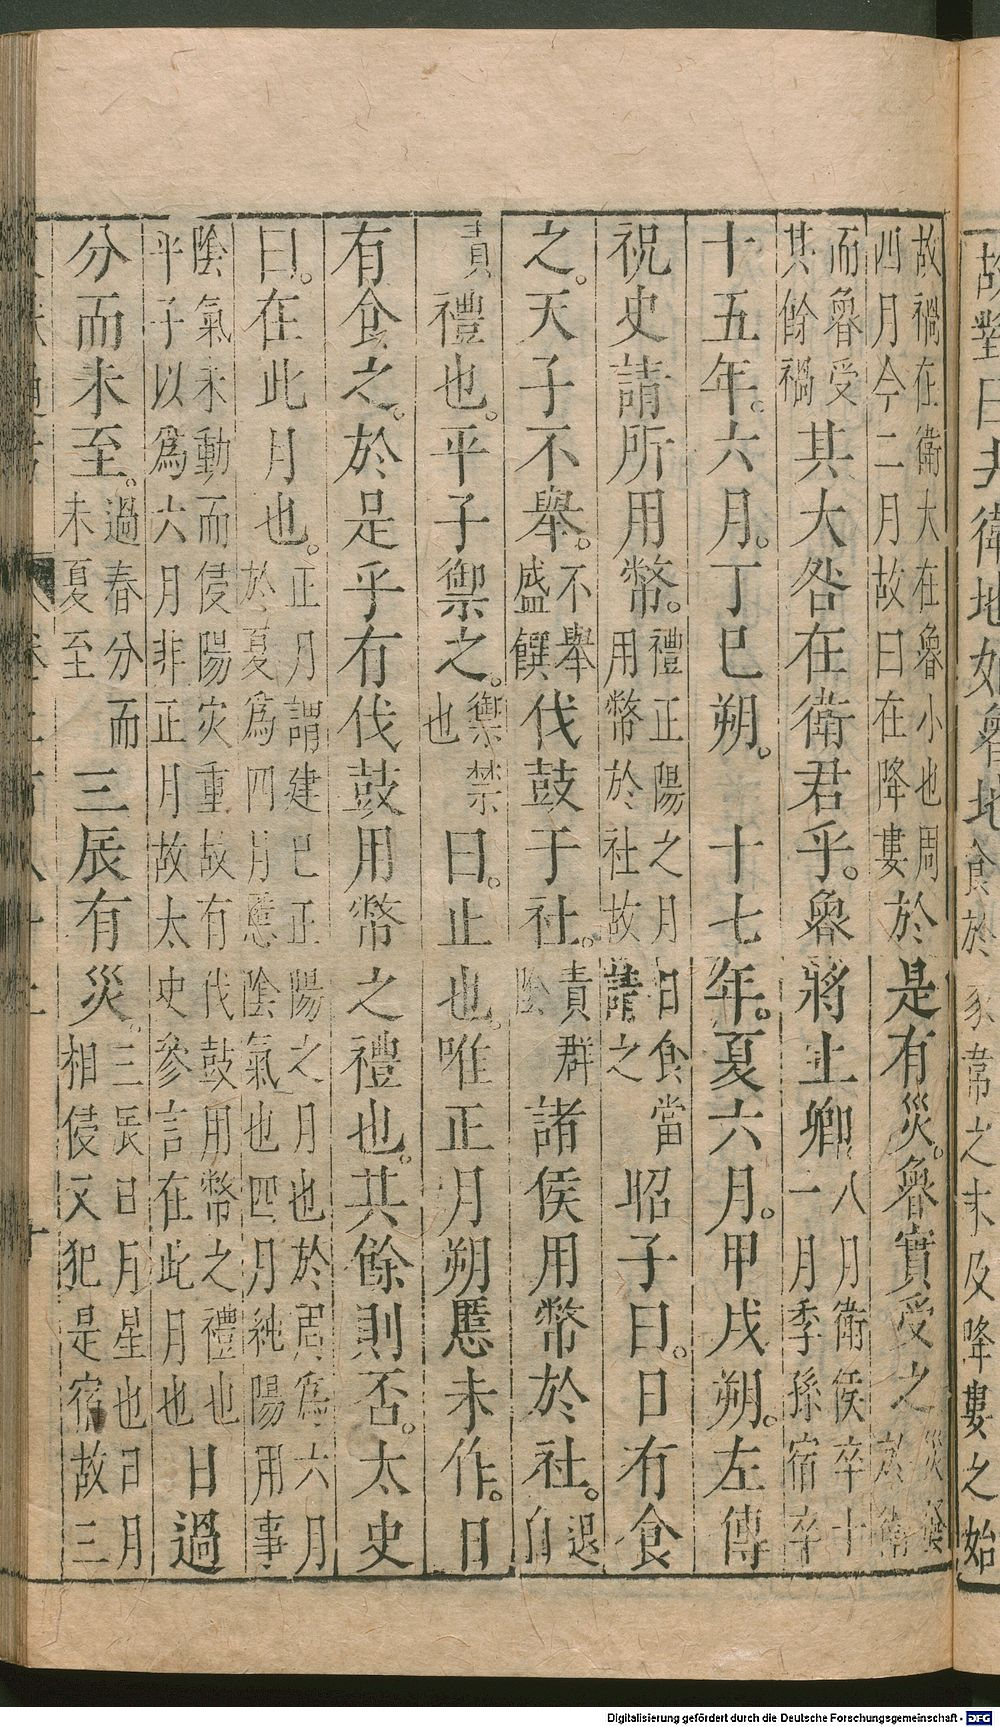 故對曰去衛地如魯地食於豕韋之末及降婁之始
故禍在衛大在魯小也周四月今二月故曰在降婁於是有災。魯實受之災發於衛
而魯受其餘禍其大咎在衛君乎。魯將上卿八月衛侯卒十一月季孫宿卒
十五年。六月。丁巳朔。 十七年。夏六月。甲戌朔。左傳
祝史請所用幣。禮正陽之月日食當用幣於社故請之昭子曰。日有食
之。天子不舉。不舉盛饌伐鼓于社。責群陰諸侯用幣於社。退自
責禮也。平子禦之。禦禁也曰。止也。唯正月朔慝未作。日
有食之。於是乎有伐鼓用幣之禮也。其餘則否。太史
曰。在此月也。正月謂建巳正陽之月也於周爲六月於夏爲四月慝陰氣也四月純陽用事
陰氣未動而侵陽灾重故有伐鼓用幣之禮也平子以爲六月非正月故太史參言在此月也日過
分而未至。過春分而未夏至三辰有災。三辰日月星也日月相侵又犯是宿故三
Digitalisierung gefördert durch die Deutsche Forschungsgemeinschaft - DFG